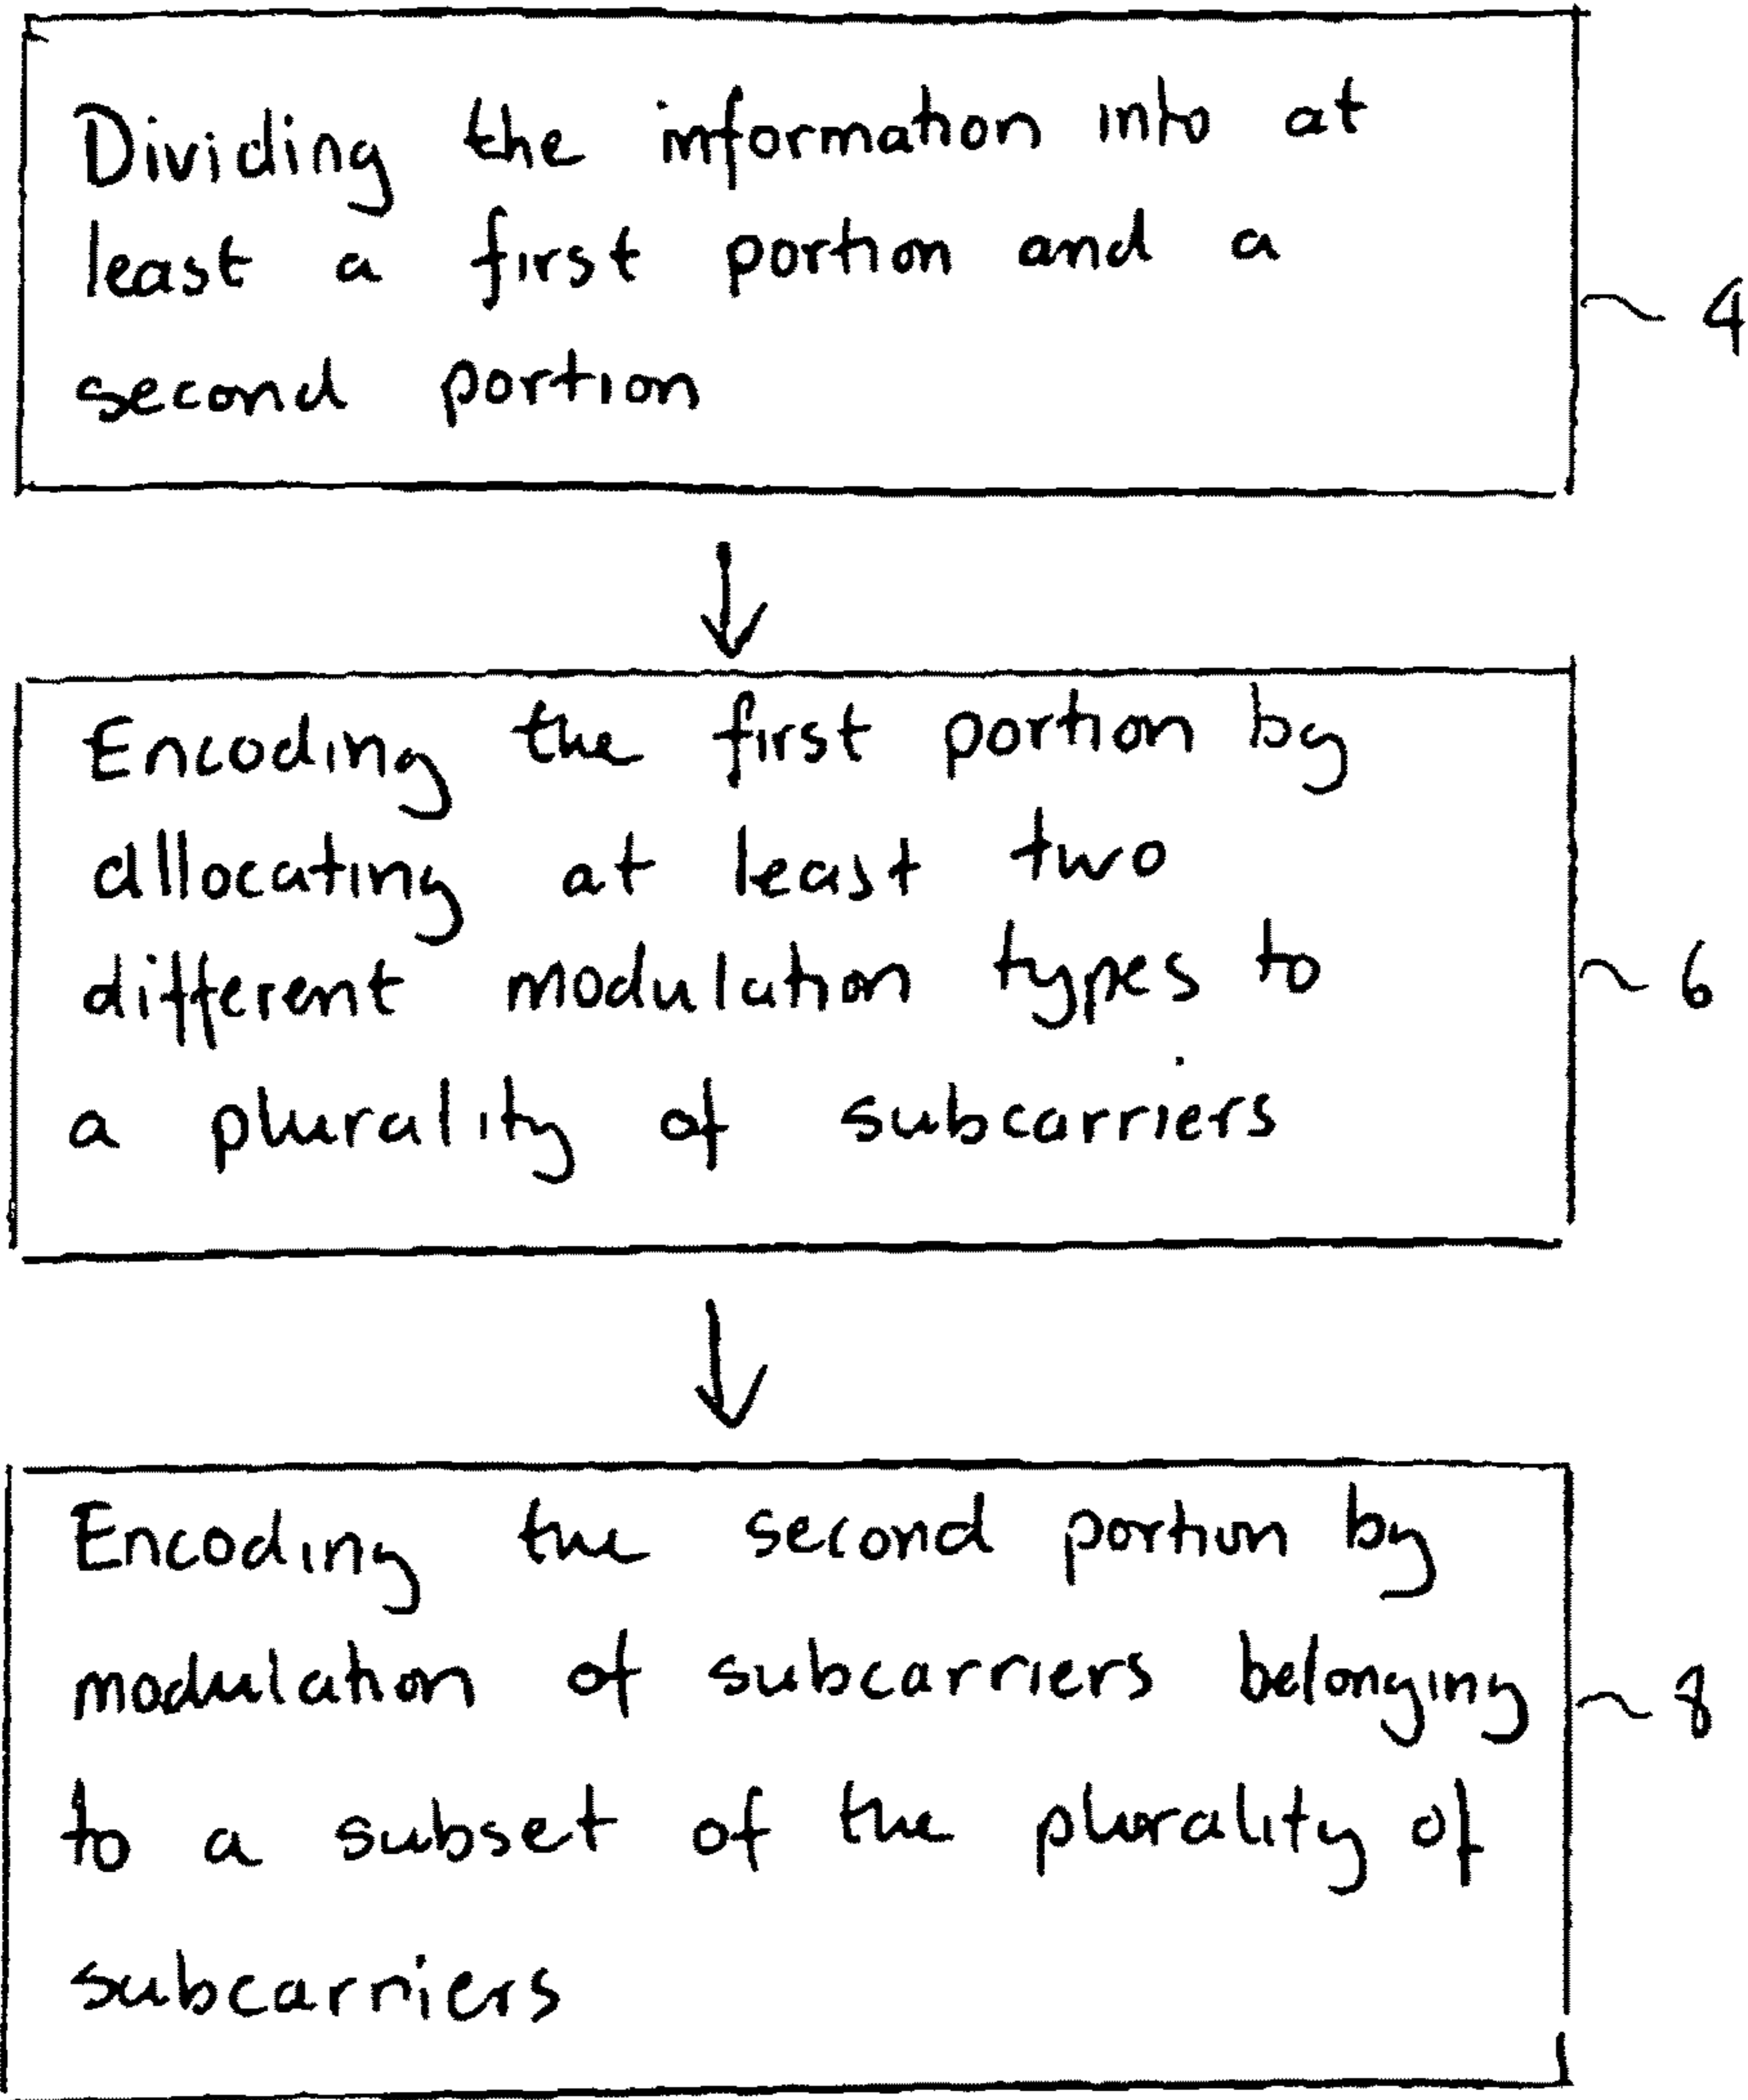 Dividing the information into at
least a first portion and a
second portion
4
Encoding the first portion by
allocating at least two
different modulation types to
a plurality of subcarriers
6
Encoding the second portion by
modulation of subcarriers belonging
to a subset of the plurality of
subcarriers
8